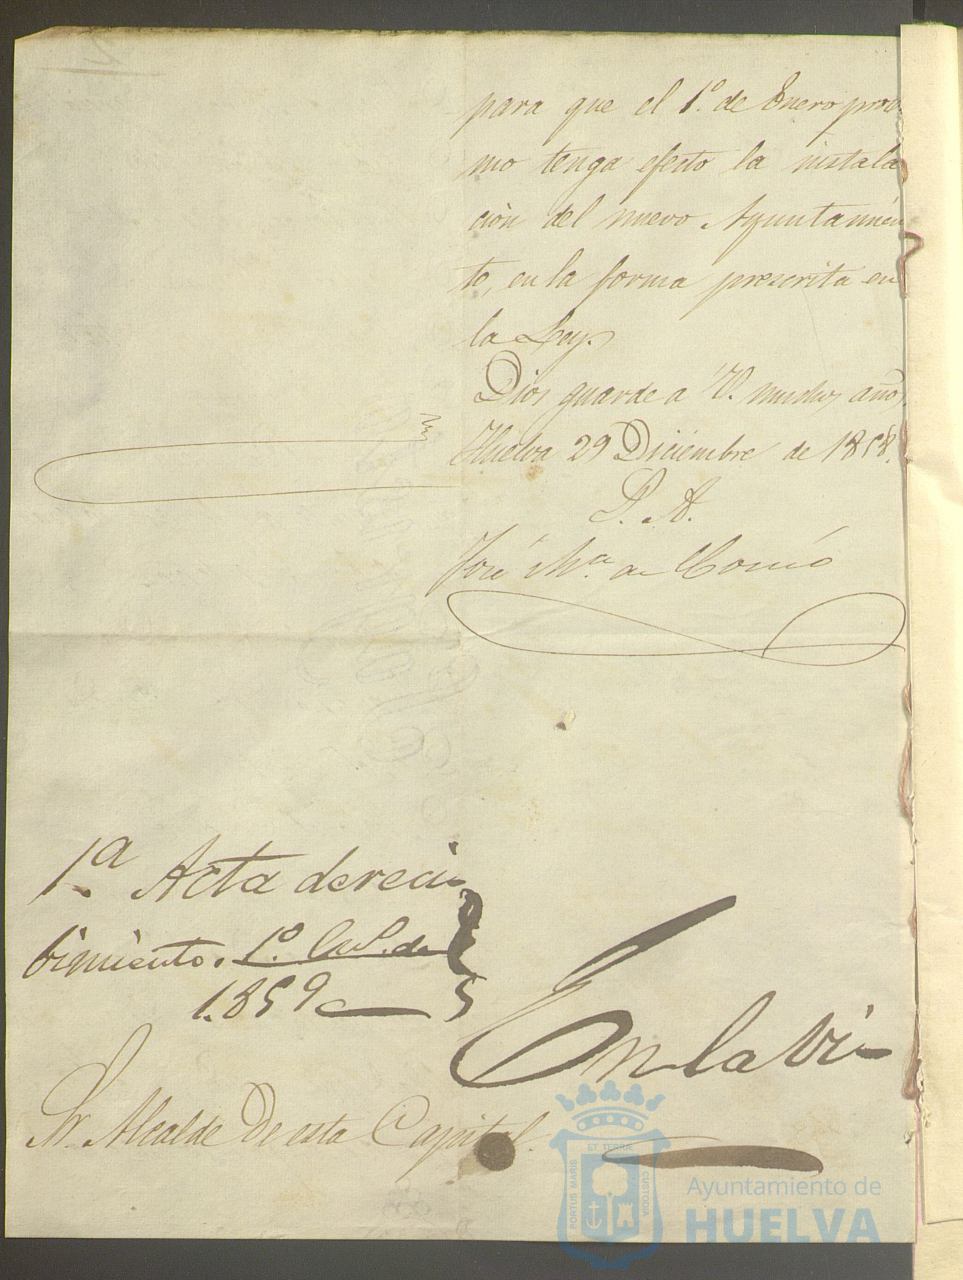 para que el 1º. de Enero proxi
mo tenga efecto la instala
cion del nuevo Ayuntamien
to, en la forma prescrita en
la Ley.
Dios guarde a V. muchos años.
Huelva 29 Diciembre de 1858.
P. A.
José Mª de
1ª Acta de reci
bimiento. 1º. de
1.859
En la Vi-
Sr. Alcalde de esta Capital.
PORTUS MARIS
ET TERRE
CUSTODIA
Ayuntamiento de
HUELVA